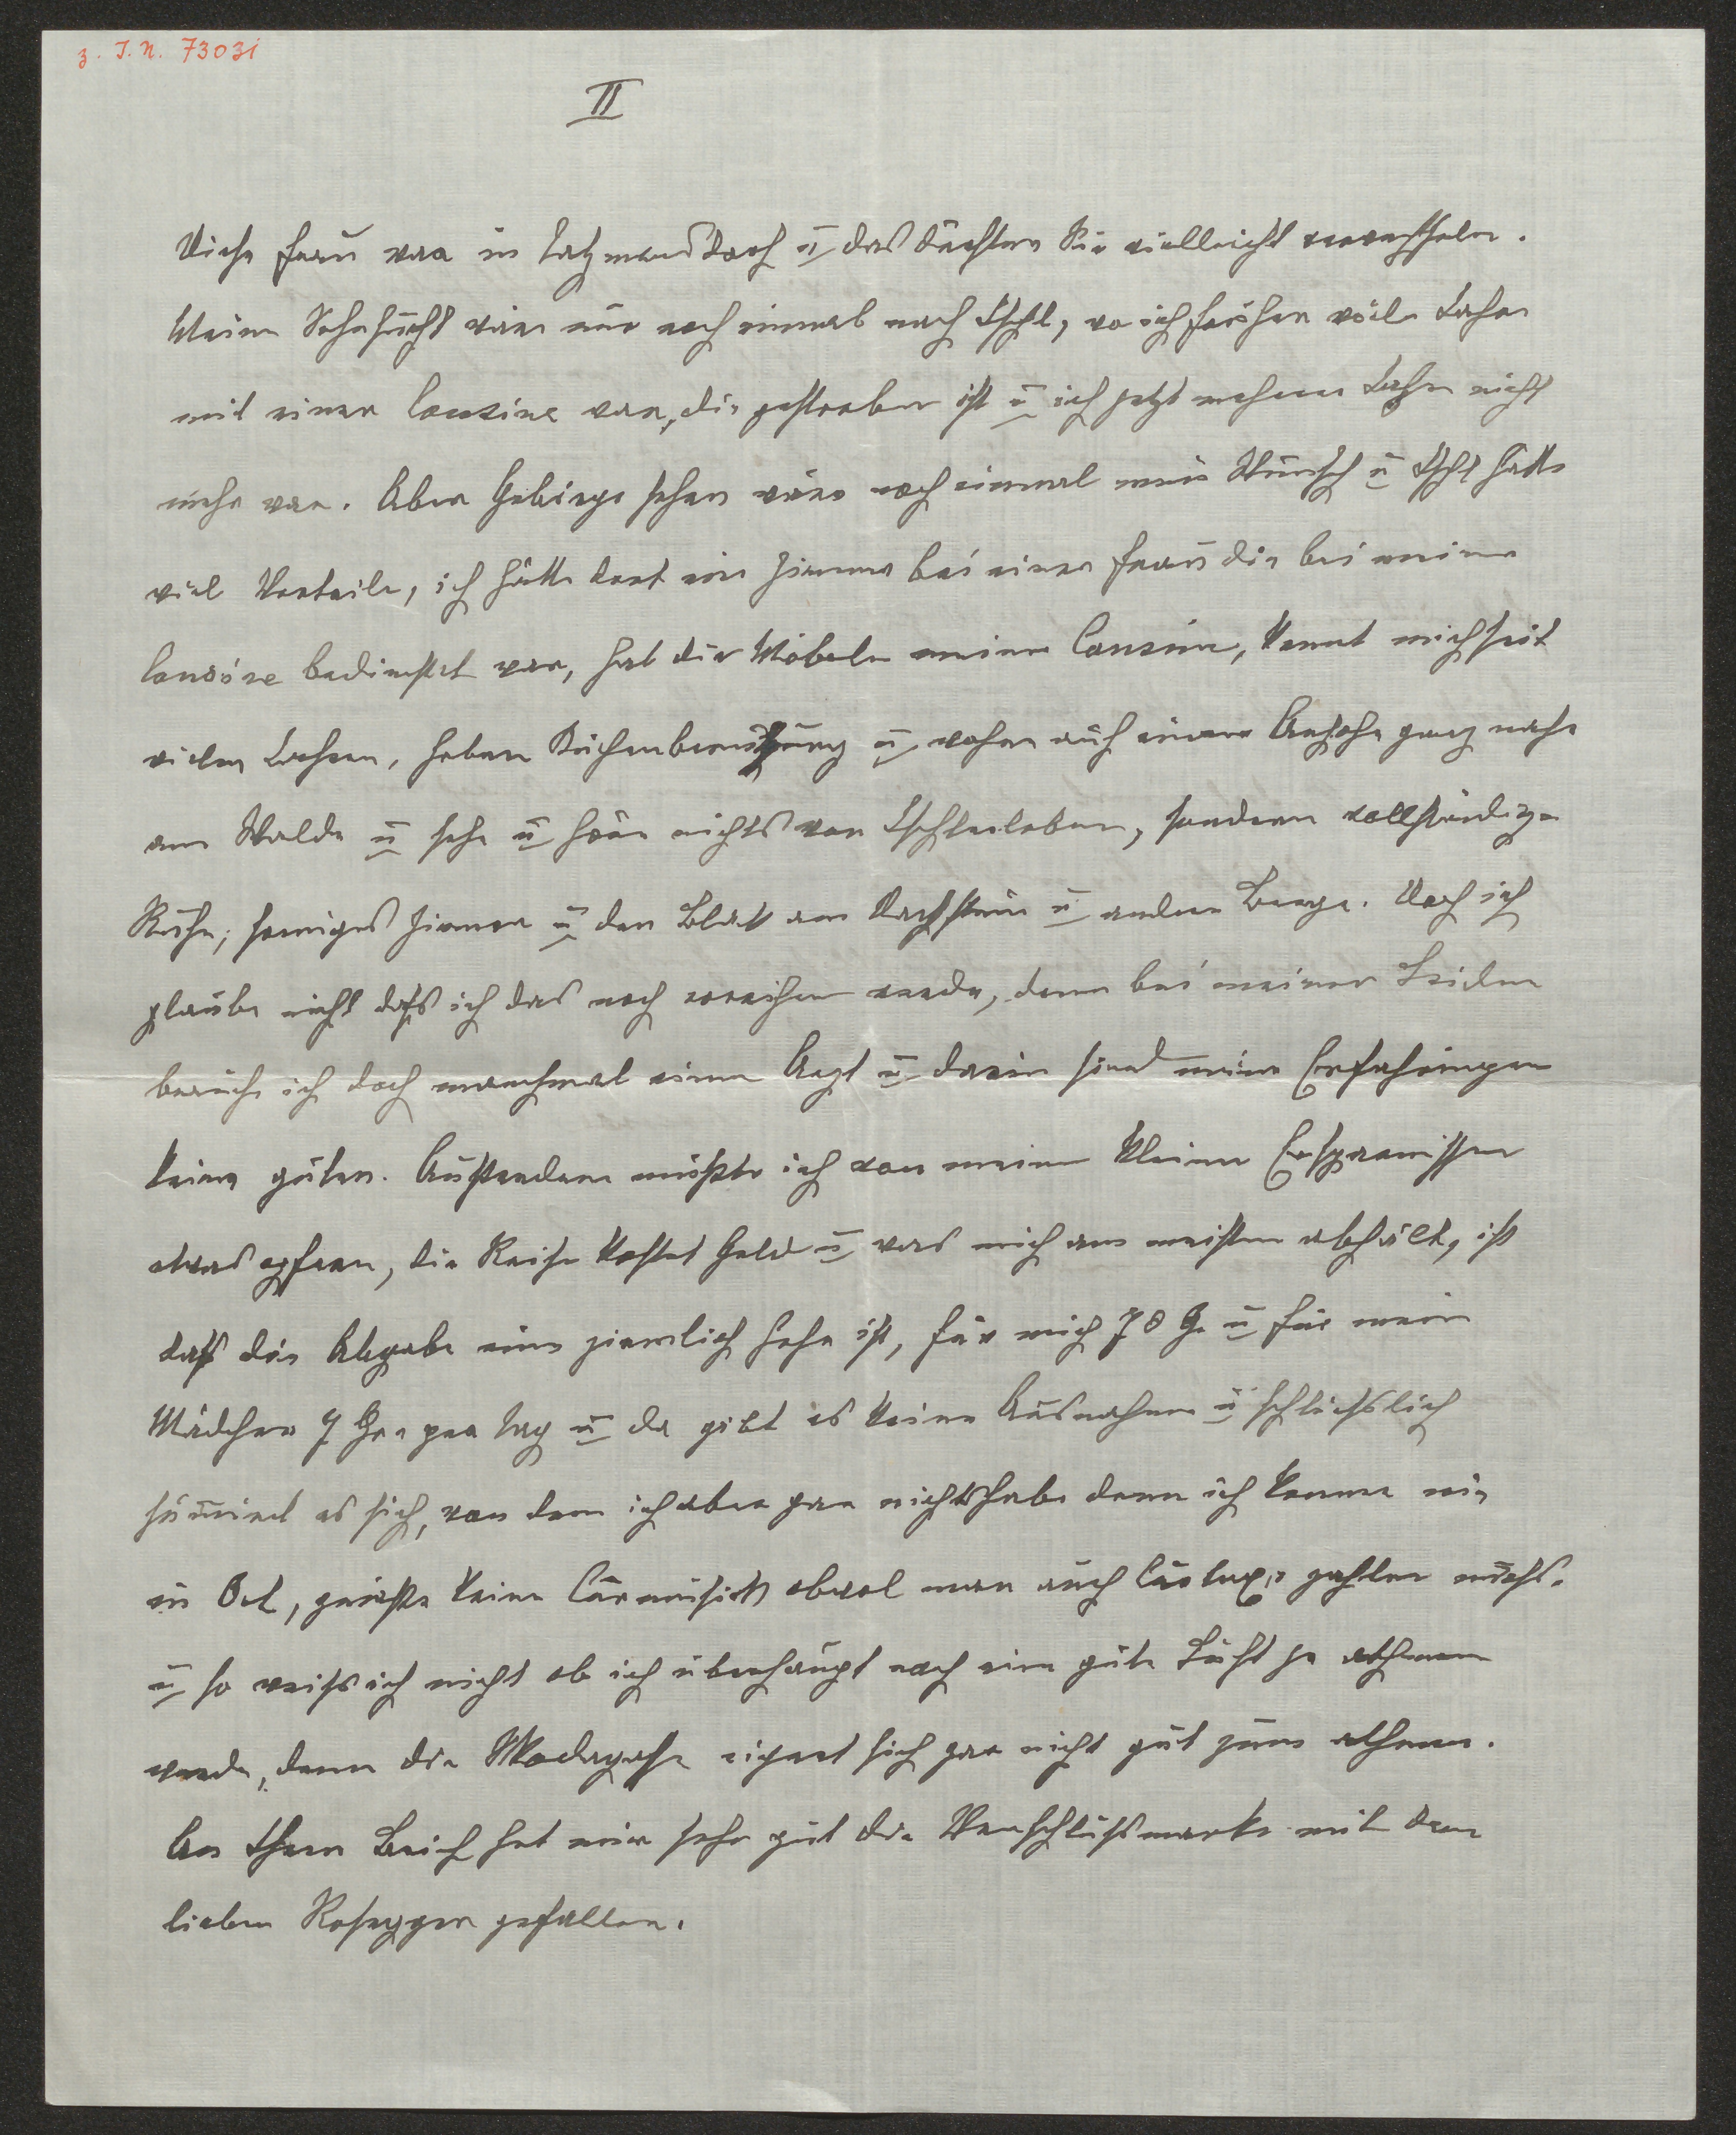 z. I.N. 73031
II
Diese Frau war in Tatzmannsdorf u das dürften Sie vielleicht verwechseln.
Meine Sehnsucht wäre nur noch einmal nach Ischl, wo ich früher viele Jahre
mit einer Cousine war, die gestorben ist u ich jetzt mehrere Jahre nicht
mehr war. Aber Gebirge sehen wäre noch einmal mein Wunsch u Ischl hätte
viel Vorteile, ich hätte dort ein Zimmer bei einer Frau die bei meiner
Cousine bedienstet war, hat die Möbeln meiner Cousine, kennt mich seit
vielen Jahren, haben Küchenbenützung u wohne auf einer Anhöhe ganz nahe
am Walde u sehe u höre nichts von Ischlerleben, sondern vollständige
Ruhe, sonniges Zimmer u den Blick am Dachstein u andere Berge. Doch ich
glaube nicht daß ich das noch erreichen werde, denn bei meinen Leiden
brauche ich doch manchmal einen Arzt u darin sind meine Erfahrungen
keine guten. Außerdem müßte ich von meinen kleinen Ersparnissen
etwas opfern, die Reise kostet Geld u was mich am meisten abhält, ist
daß die Abgabe eine ziemlich hohe ist, für mich 70 G. u für mein
Mädchen 7 Gr. per Tag u da gibt es keine Ausnahme u schließlich
sumirt es sich, von dem ich aber gar nichts habe denn ich komme nie
in Ort, genieße keine Curmusik obwol man auch Curtaxe zahlen muß.
u so weiß ich nicht ob ich überhaupt noch eine gute Luft je athmen
werde, denn die Mondgasse eignet sich gar nicht gut zum athmen.
An Ihrem Brief hat mir sehr gut die Verschlußmarke mit dem
lieben Rosegger gefallen.